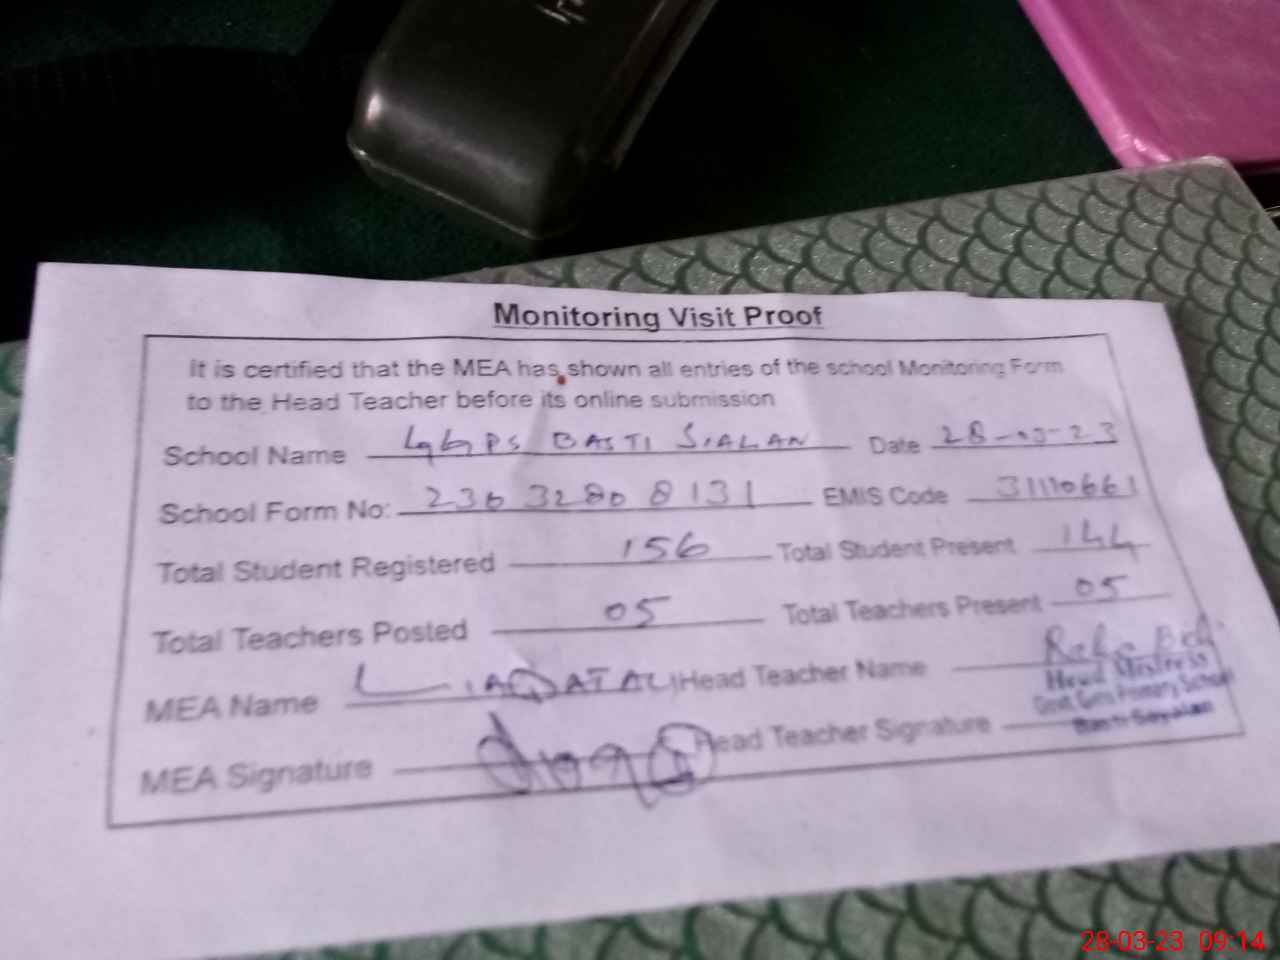 Monitoring Visit Proof
It is certified that the MEA has shown all entries of the school Monitoring Form
to the Head Teacher before its online submission
School Name GGPS BASTI SIALAN Date 28-03-23
School Form No: 23032808131 EMIS Code 31110661
Total Student Registered 156 Total Student Present 144
Total Teachers Posted 05 Total Teachers Present 05
MEA Name LIAQAT ALI Head Teacher Name
Head Mistress
Govt. Girls Primary School
MEA Signature Head Teacher Signature
Basti Sayalan
28-03-23 09:14